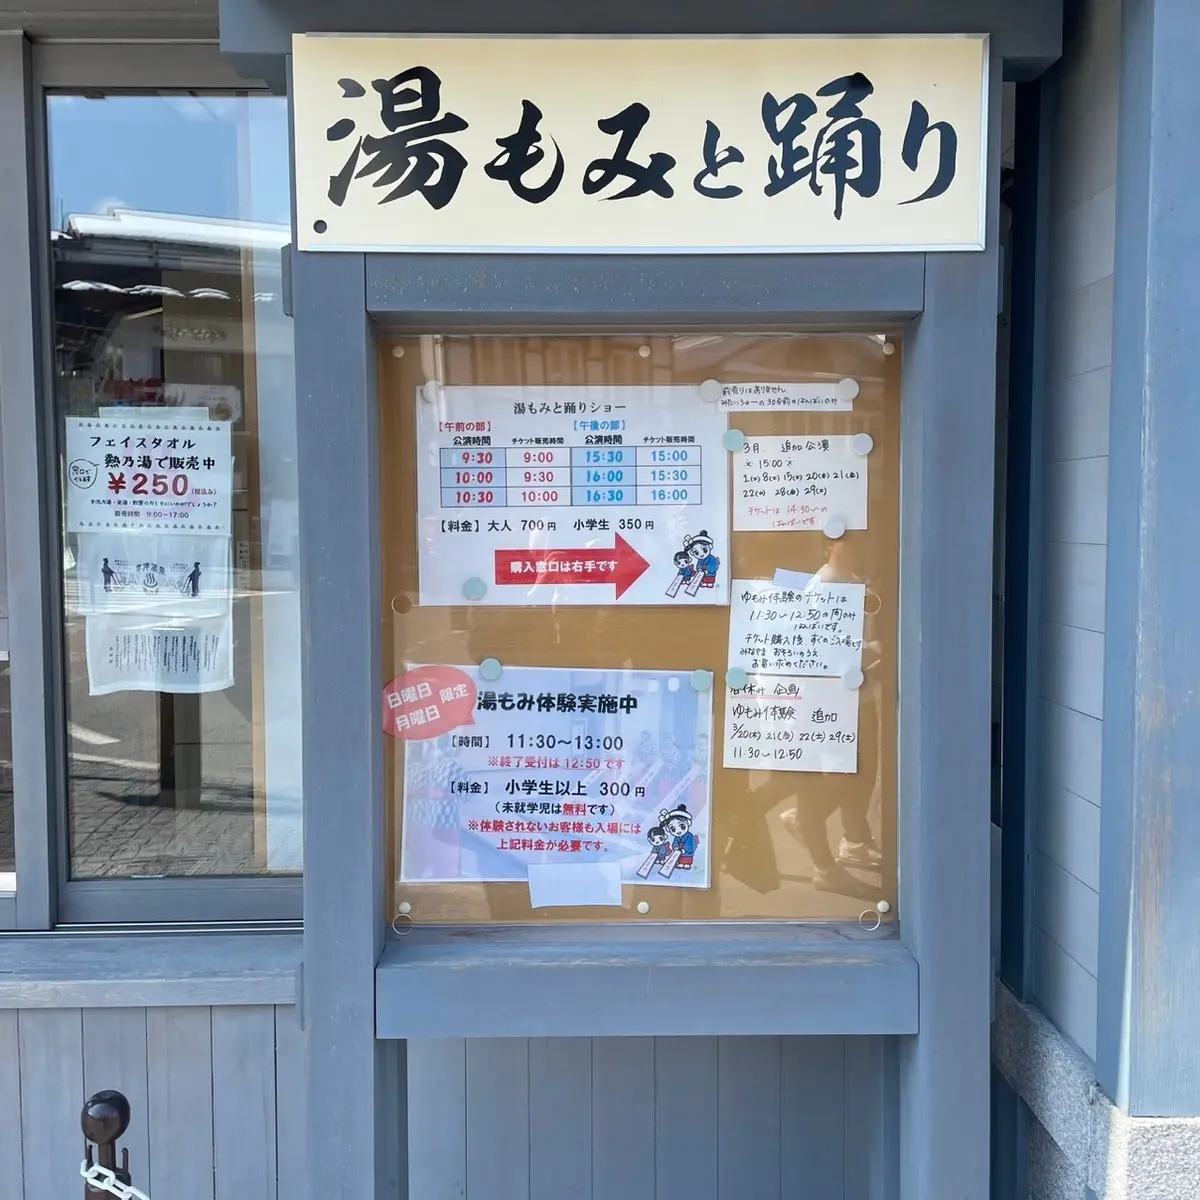 湯もみと踊り
湯もみと踊りショー
【午前の部】 【午後の部】
公演時間 チケット販売時間 公演時間 チケット販売時間
9:30 9:00 15:30 15:00
10:00 9:30 16:00 15:30
10:30 10:00 16:30 16:00
【料金】大人 700円 小学生 350円
購入窓口は右手です
前売りはありません
3月 追加公演
× 15:00 ×
22(土) 28(金) 29(土)
チケットは 14:30〜の
はんばいです
ゆもみ体験のチケットは
11:30〜12:50の間のみ
はんばいです。
チケット購入後 すぐのご入場です
みなさま おそろいのうえ
お買い求めください。
春休み 企画
ゆもみ体験 追加
3/20(木) 21(金) 22(土) 29(土)
11:30〜12:50
日曜日
月曜日
限定
湯もみ体験実施中
【時間】 11:30〜13:00
※終了受付は 12:50 です
【料金】 小学生以上 300円
（未就学児は無料です）
※体験されないお客様も入場には
上記料金が必要です。
フェイスタオル
熱乃湯で販売中
窓口で
￥250(税込み)
販売時間 9:00〜17:00